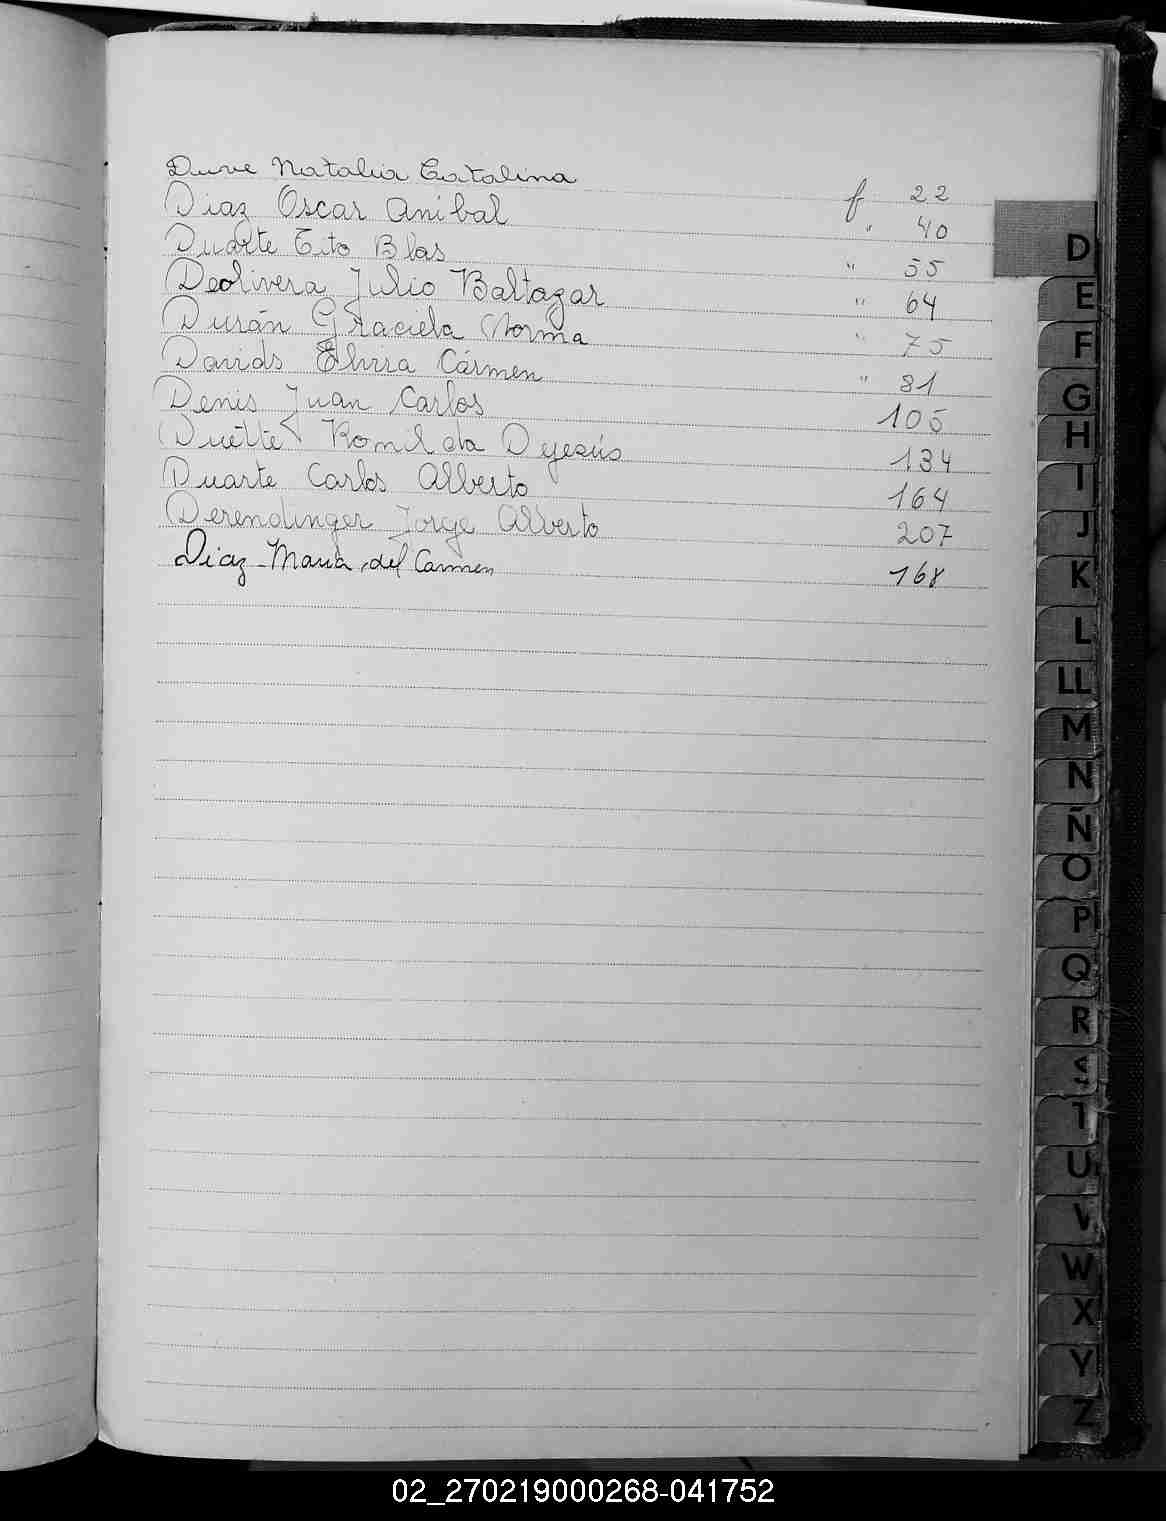 Duve Natalia Catalina f 22
Diaz Oscar Anibal " 40
Duarte Tito Blas " 55
Deolivera Julio Baltazar " 64
Durán Graciela Norma " 75
Davids Elvira Cármen " 81
Denis Juan Carlos 105
Romilda Dejesús 134
Duarte Carlos Alberto 164
Derendinger Jorge Alberto 207
Diaz Maria del Carmen 168
D
E
F
G
H
I
J
K
L
LL
M
N
Ñ
O
P
Q
R
S
T
U
V
W
X
Y
Z
02_270219000268-041752